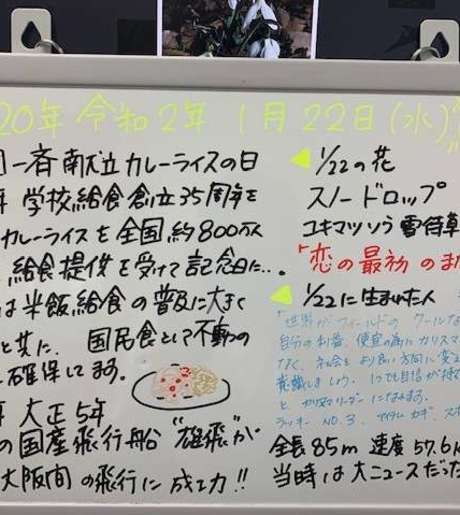 20年 令和2年 1月22日(水)
一斉献立カレーライスの日
学校給食創立35周年を
カレーライスを全国約800万人
給食提供を受けて記念日に..
は米飯給食の普及に大きく
と共に、国民食として不動の
確保してます。
大正5年
の国産飛行船"雄飛"が
大阪間の飛行に成功!!
1/22の花
スノードロップ
ユキマツソウ 雪待草
「恋の最初のま
1/22に生まれた人
「世界がフィールドの クールな
自分の利害、便宜の為に カリスマ
なく、社会をより良い方向に変え
意識しましょう。いつも自信が持て
と リーダーになれます。
ラッキー NO.3. アイテム カギ、スポ
全長85m 速度 57.6k
当時は大ニュースだった